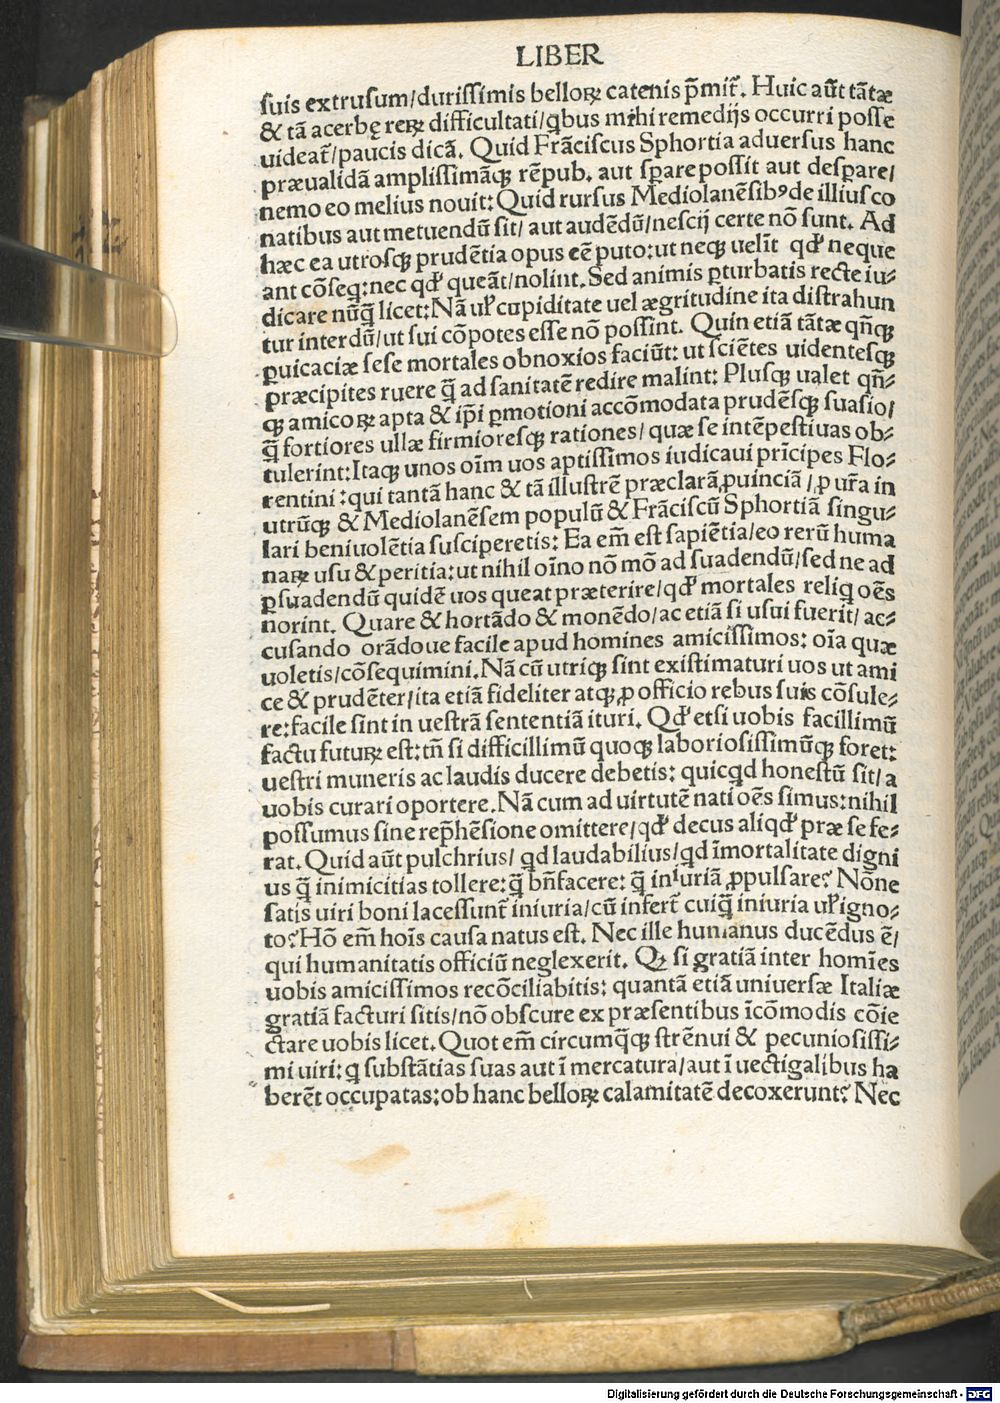 LIBER
ſuis extruſum/duriſſimis belloꝝ catenis p̄mit᷑. Huic aūt tātæ
& tā acerbę reꝝ difficultati/qbus mihi remedijs occurri poſſe
uideat᷑/paucis dicā. Quid Frāciſcus Sphortia aduerſus hanc
præualidā ampliſſimāqꝫ rēpub. aut ſꝑare poſſit aut deſꝑare/
nemo eo melius nouit: Quid rurſus Mediolanēſibꝰ de illius co
natibus aut metuendū ſit/ aut audēdū/neſcij certe nō ſunt. Ad
hæc ea utroſqꝫ prudētia opus eē puto: ut neqꝫ uelīt qď neque
ant cōſeq: nec qď queāt/nolint. Sed animis ꝑturbatis recte iu⸗
dicare nūq̄ licet: Nā uꝉ cupiditate uel ægritudine ita diſtrahun
tur interdū/ut ſui cōpotes eſſe nō poſſint. Quin etiā tātæ qn̄qꝫ
ꝑuicaciæ ſeſe mortales obnoxios faciūt: ut ſciētes uidenteſqꝫ
præcipites ruere q̄ ad ſanitatē redire malint: Pluſqꝫ ualet qn̄⸗
qꝫ amicoꝝ apta & ip̄i ꝑmotioni accōmodata prudēſqꝫ ſuaſio/
q̄ fortiores ullæ firmioreſqꝫ rationes/ quæ ſe intēpeſtiuas ob⸗
tulerint: Itaqꝫ unos oīm uos aptiſſimos iudicaui prīcipes Flo⸗
rentini: qui tantā hanc & tā illuſtrē præclarā ꝓuinciā/ ꝓ ur̄a in
utrūqꝫ & Mediolanēſem populū & Frāciſcū Sphortiā ſingu⸗
lari beniuolētia ſuſciperetis: Ea em̄ eſt ſapiētia/eo rerū huma
naꝝ uſu & peritia: ut nihil oīno nō mō ad ſuadendū/ſed ne ad
ꝑſuadendū quidē uos queat præterire/qď mortales reliq oēs
norint. Quare & hortādo & monēdo/ac etiā ſi uſui fuerit/ ac⸗
cuſando orādoue facile apud homines amiciſſimos: oīa quæ
uoletis/cōſequimini. Nā cū utriqꝫ ſint exiſtimaturi uos ut ami
ce & prudēter/ita etiā fideliter atqꝫ ꝓ officio rebus ſuis cōſule⸗
re: facile ſint in ueſtrā ſententiā ituri. Qď etſi uobis facillimū
factu futuꝝ eſt: tn̄ ſi difficillimū quoqꝫ laborioſiſſimūqꝫ foret:
ueſtri muneris ac laudis ducere debetis: quicqd honeſtū ſit/ a
uobis curari oportere. Nā cum ad uirtutē nati oēs ſimus: nihil
poſſumus ſine rep̄hēſione omittere/qď decus aliqď præ ſe fe⸗
rat. Quid aūt pulchrius/ qd laudabilius/qd īmortalitate digni
us q̄ inimicitias tollere: q̄ bn̄facere: q̄ iniuriā ꝓpulſare? Nōne
ſatis uiri boni laceſſunt᷑ iniuria/cū infert᷑ cuiq̄ iniuria uꝉ igno⸗
to? Hō em̄ hoīs cauſa natus eſt. Nec ille humanus ducēdus ē/
qui humanitatis officiū neglexerit. Qꝫ ſi gratiā inter homīes
uobis amiciſſimos recōciliabitis: quantā etiā uniuerſæ Italiæ
gratiā facturi ſitis/nō obſcure ex præſentibus īcōmodis cōie
ctare uobis licet. Quot em̄ circumq̄qꝫ ſtrēnui & pecunioſiſſi⸗
mi uiri: q ſubſtātias ſuas aut ī mercatura/aut ī uectigalibus ha
berēt occupatas: ob hanc belloꝝ calamitatē decoxerunt? Nec
Digitalisierung gefördert durch die Deutsche Forschungsgemeinschaft - DFG